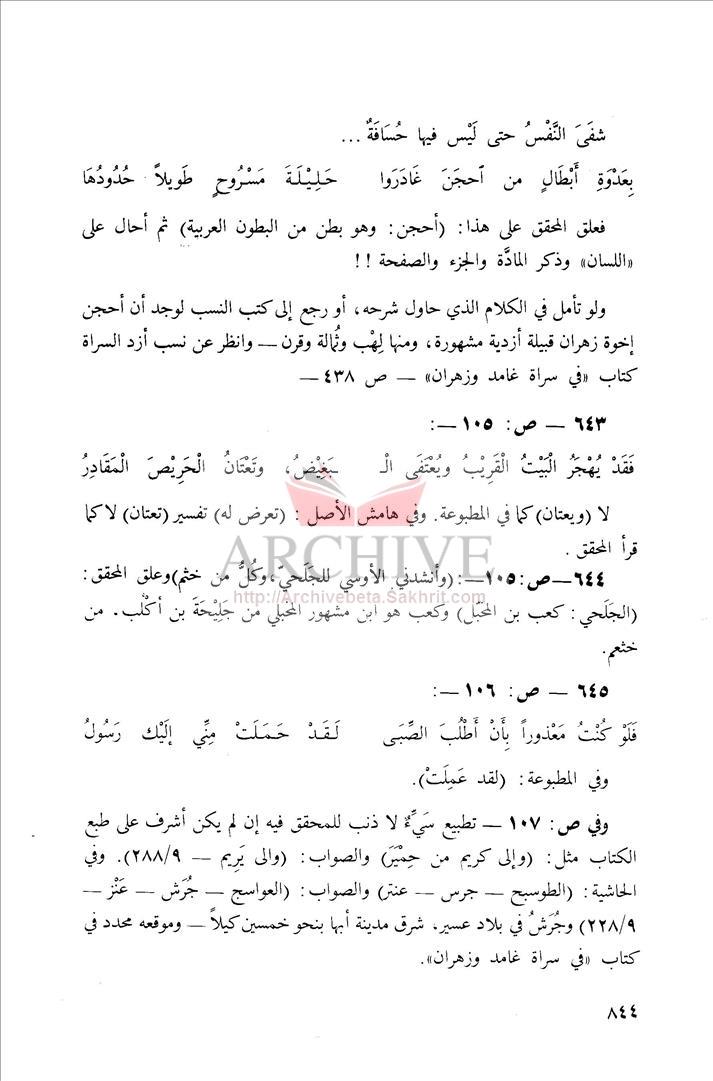 شفَىَ النَّفْسُ حتى لَيْس فيها حُسَافَةٌ ...
بِعَدْوَةِ أَبْطَالٍ من ٱحجَنَ غَادَرَوا حَلِيْلَةَ مَسْرُوحٍ طَويلاً حُدُودُهَا
فعلق المحقق على هذا: (أحجن: وهو بطن من البطون العربية) ثم أحال على
«اللسان» وذكر المادَّة والجزء والصفحة !!
ولو تأمل في الكلام الذي حاول شرحه، أو رجع إلى كتب النسب لوجد أن أحجن
إخوة زهران قبيلة أزدية مشهورة، ومنها لِهْب وثُمالة وقرن — وانظر عن نسب أزد السراة
كتاب «في سراة غامد وزهران» — ص ٤٣٨ —
٦٤٣ — ص: ١٠٥ —:
فَقَدْ يُهْجَرُ الْبَيْتُ الْقَرِيْبُ ويُعْتَفَى الْـ ـبَغِيْضُ، وتَعْتَانُ الْحَرِيْصَ الْمَقَادِرُ
لا (ويعتان) كما في المطبوعة. وفي هامش الأصل : (تعرض له) تفسير (تعتان) لا كما
قرأ المحقق .
٦٤٤ — ص: ١٠٥ —: (وأنشدني الأوسي للجَلَحي، وكُلٌّ من خثم) وعلق المحقق:
(الجَلَحي: كعب بن المخبّل) وكعب هو ابن مشهور المخبلي من جَلِيْحَة بن أكْلب. من
خثعم.
٦٤٥ — ص: ١٠٦ —:
فَلَوْ كُنْتُ مَعْذوراً بِأَنْ أَطْلُبَ الصِّبَى لَقَدْ حَمَلَتْ مِنِّي إلَيْك رَسُولُ
وفي المطبوعة: (لقد عَمِلَتْ).
وفي ص: ١٠٧ — تطبيع سَيِّءٌ لا ذنب للمحقق فيه إن لم يكن أشرف على طبع
الكتاب مثل: (وإلى كريم من حِمْيَرَ) والصواب: (والى يَرِيم — ٢٨٨/٩). وفي
الحاشية: (الطوسيح — جرس — عنتر) والصواب: (العواسج — جُرَش — عَنْز —
٢٢٨/٩) وجُرَشُ في بلاد عسير، شرق مدينة أبها بنحو خمسين كيلاً — وموقعه محدد في
كتاب «في سراة غامد وزهران».
٨٤٤
ARCHIVE
http://Archivebeta.Sakhrit.com